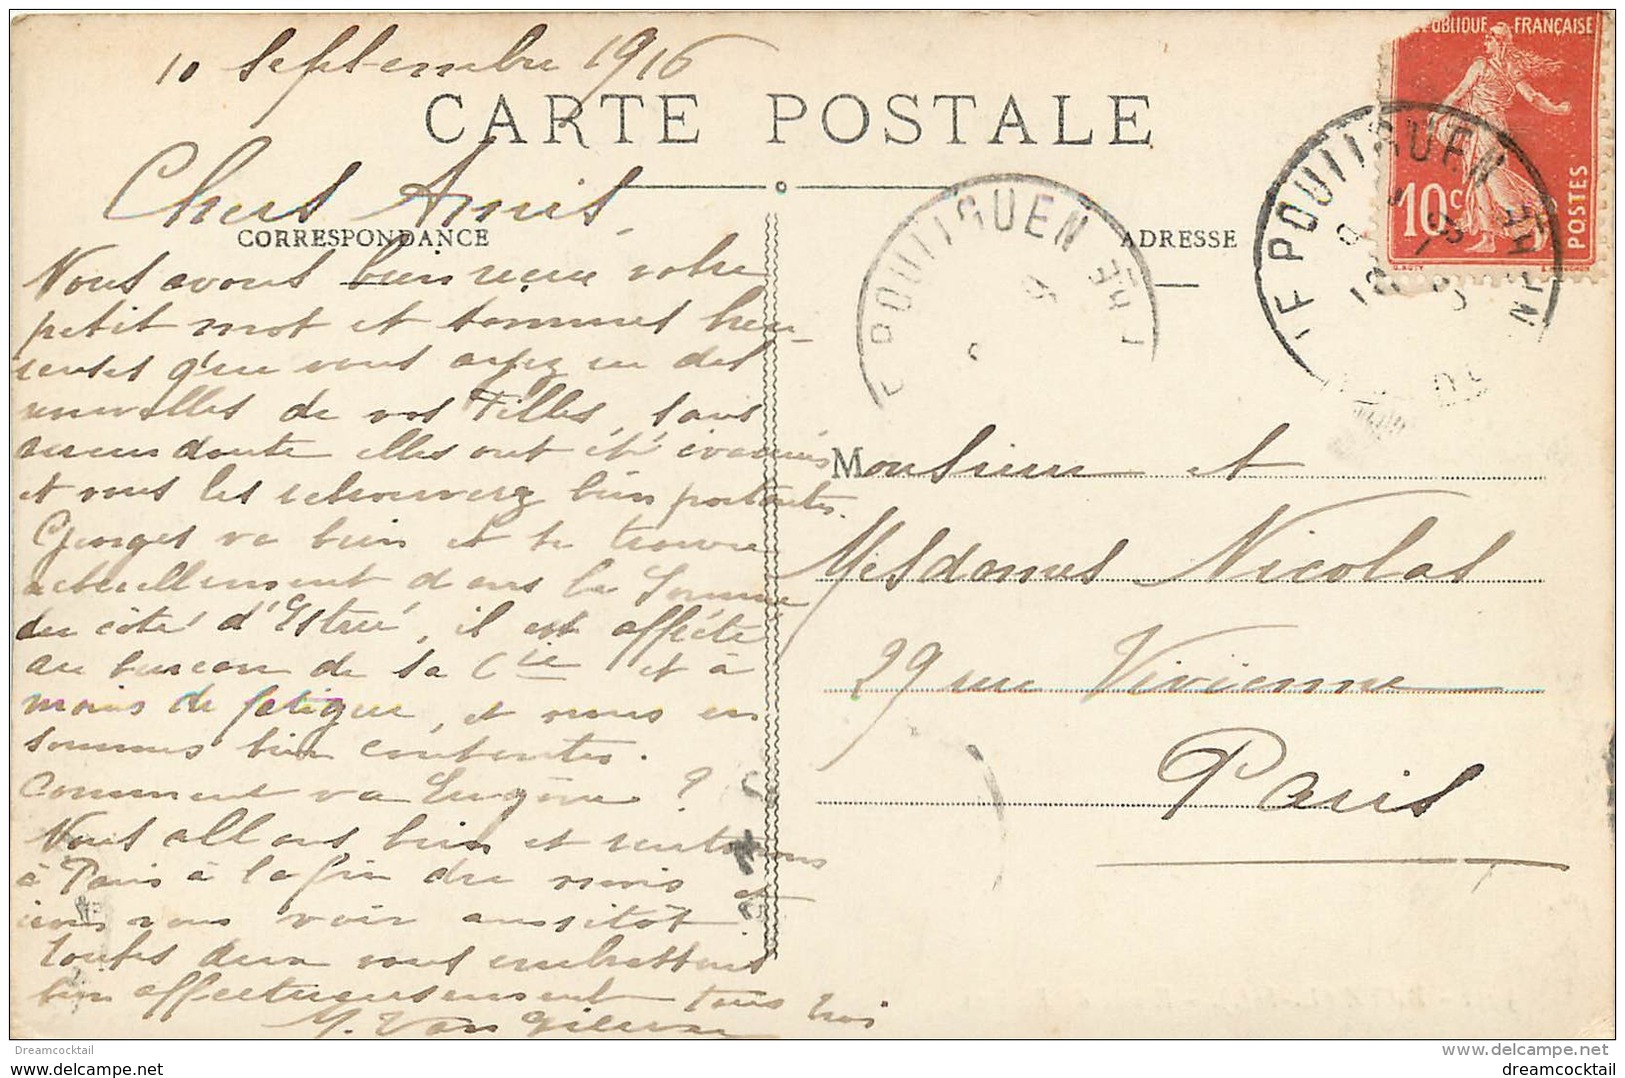 10 Septembre 1916
CARTE POSTALE
RÉPUBLIQUE FRANÇAISE
10c
POSTES
LE POULIGUEN
LE POULIGUEN
Chers Amis
CORRESPONDANCE
ADRESSE
Nous avons bien reçu votre
petit mot et sommes heu-
reuses que vous ayez eu des
nouvelles de vos Filles, sans
aucun doute elles ont été évacuées
et vous les retrouverez bien portantes.
Georges va bien et se trouve
actuellement dans la Somme
du côté d'Estrée, il est affecté
au bureau de sa Cie et a
moins de fatigue, et nous en
sommes bien contentes.
Comment va Eugène ?
Nous allons bien et rentrerons
à Paris à la fin du mois et
irons vous voir aussitôt.
Toutes deux vous embrassons
bien affectueusement tous trois
Monsieur et
Mesdames Nicolas
29 rue Vivienne
Paris
Dreamcocktail
www.delcampe.net
dreamcocktail
dreamcocktail